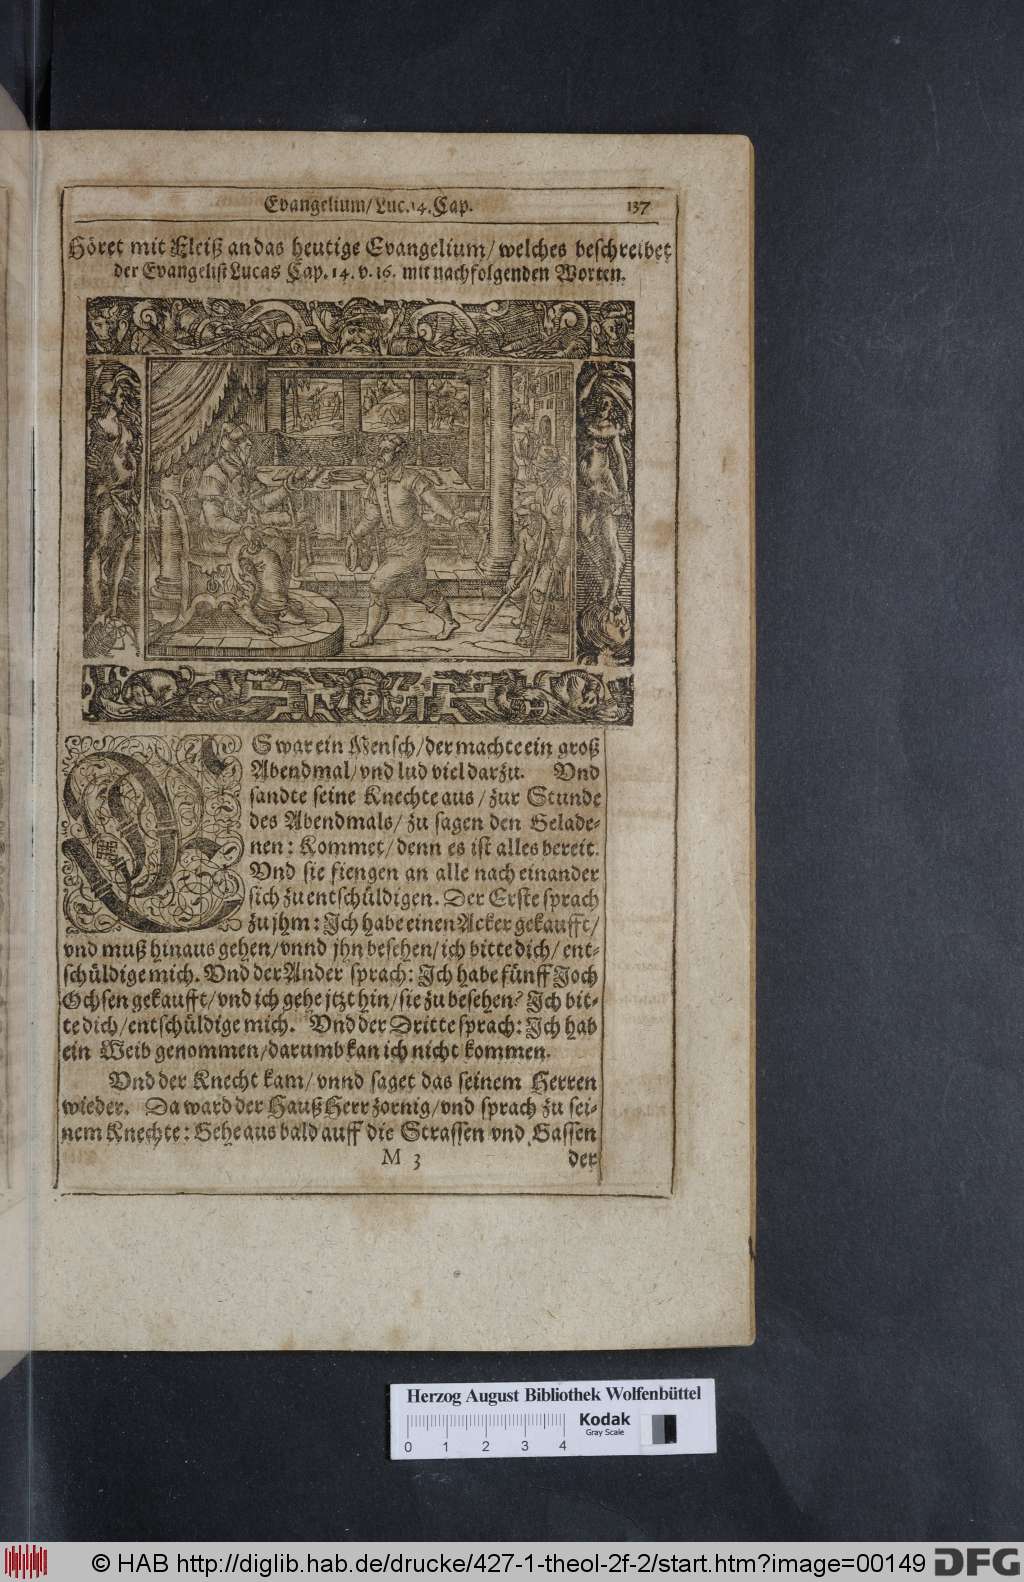 Evangelium/Luc.14.Cap. 137
Höret mit Fleiß an das heutige Evangelium/welches beschreibet
der Evangelist Lucas Cap. 14. v. 16. mit nachfolgenden Worten.
ES war ein Mensch/der machte ein groß
Abendmal/vnd lud viel darzu. Vnd
sandte seine Knechte aus/zur Stunde
des Abendmals/zu sagen den Gelade-
nen: Kommet/denn es ist alles bereit.
Vnd sie fiengen an alle nach einander
sich zu entschüldigen. Der Erste sprach
zu jhm: Ich habe einen Acker gekaufft/
vnd muß hinaus gehen/vnnd jhn besehen/ich bitte dich/ent-
schüldige mich. Vnd der Ander sprach: Ich habe fünff Joch
Ochsen gekaufft/vnd ich gehe jtzt hin/sie zu besehen? Ich bit-
te dich/entschüldige mich. Vnd der Dritte sprach: Ich hab
ein Weib genommen/darumb kan ich nicht kommen.
Vnd der Knecht kam/vnnd saget das seinem Herren
wieder. Da ward der HaußHerr zornig/vnd sprach zu sei-
nem Knechte: Gehe aus bald auff die Strassen vnd Gassen
M 3 der
Herzog August Bibliothek Wolfenbüttel
0 1 2 3 4 Kodak
Gray Scale
© HAB http://diglib.hab.de/drucke/427-1-theol-2f-2/start.htm?image=00149 DFG